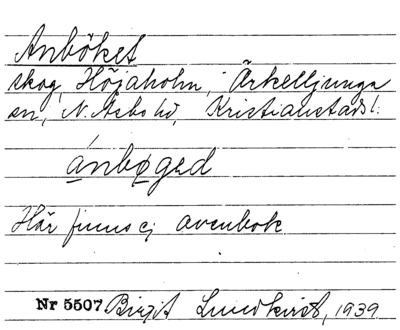 Anböket
skog, Höjaholm, Örkelljunga
sn, N. Åsbo hd, Kristianstads l.
ánbøged
Här finns ej avenbok
Nr 5507 Birgit Lundkvist, 1939